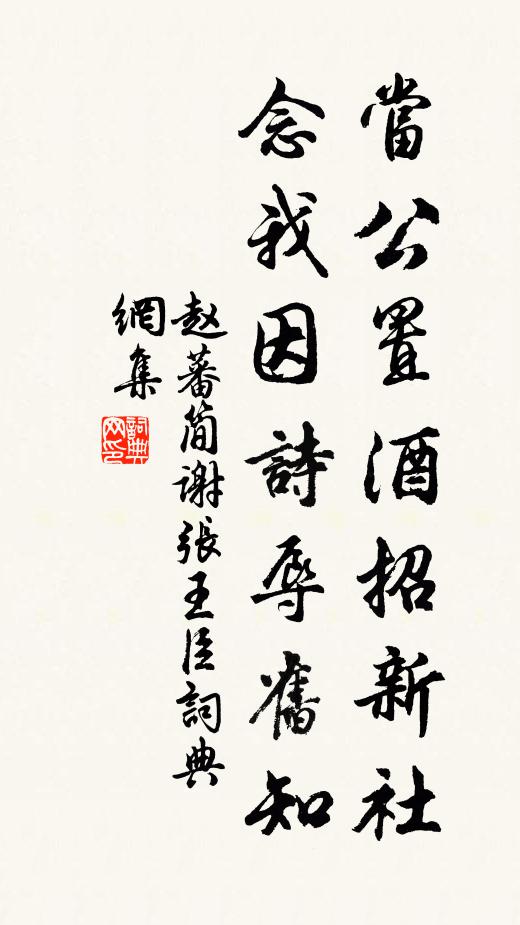 當公置酒招新社
念我因詩辱舊知
赵蕃簡謝張王臣詞典
網集
詞典
网印